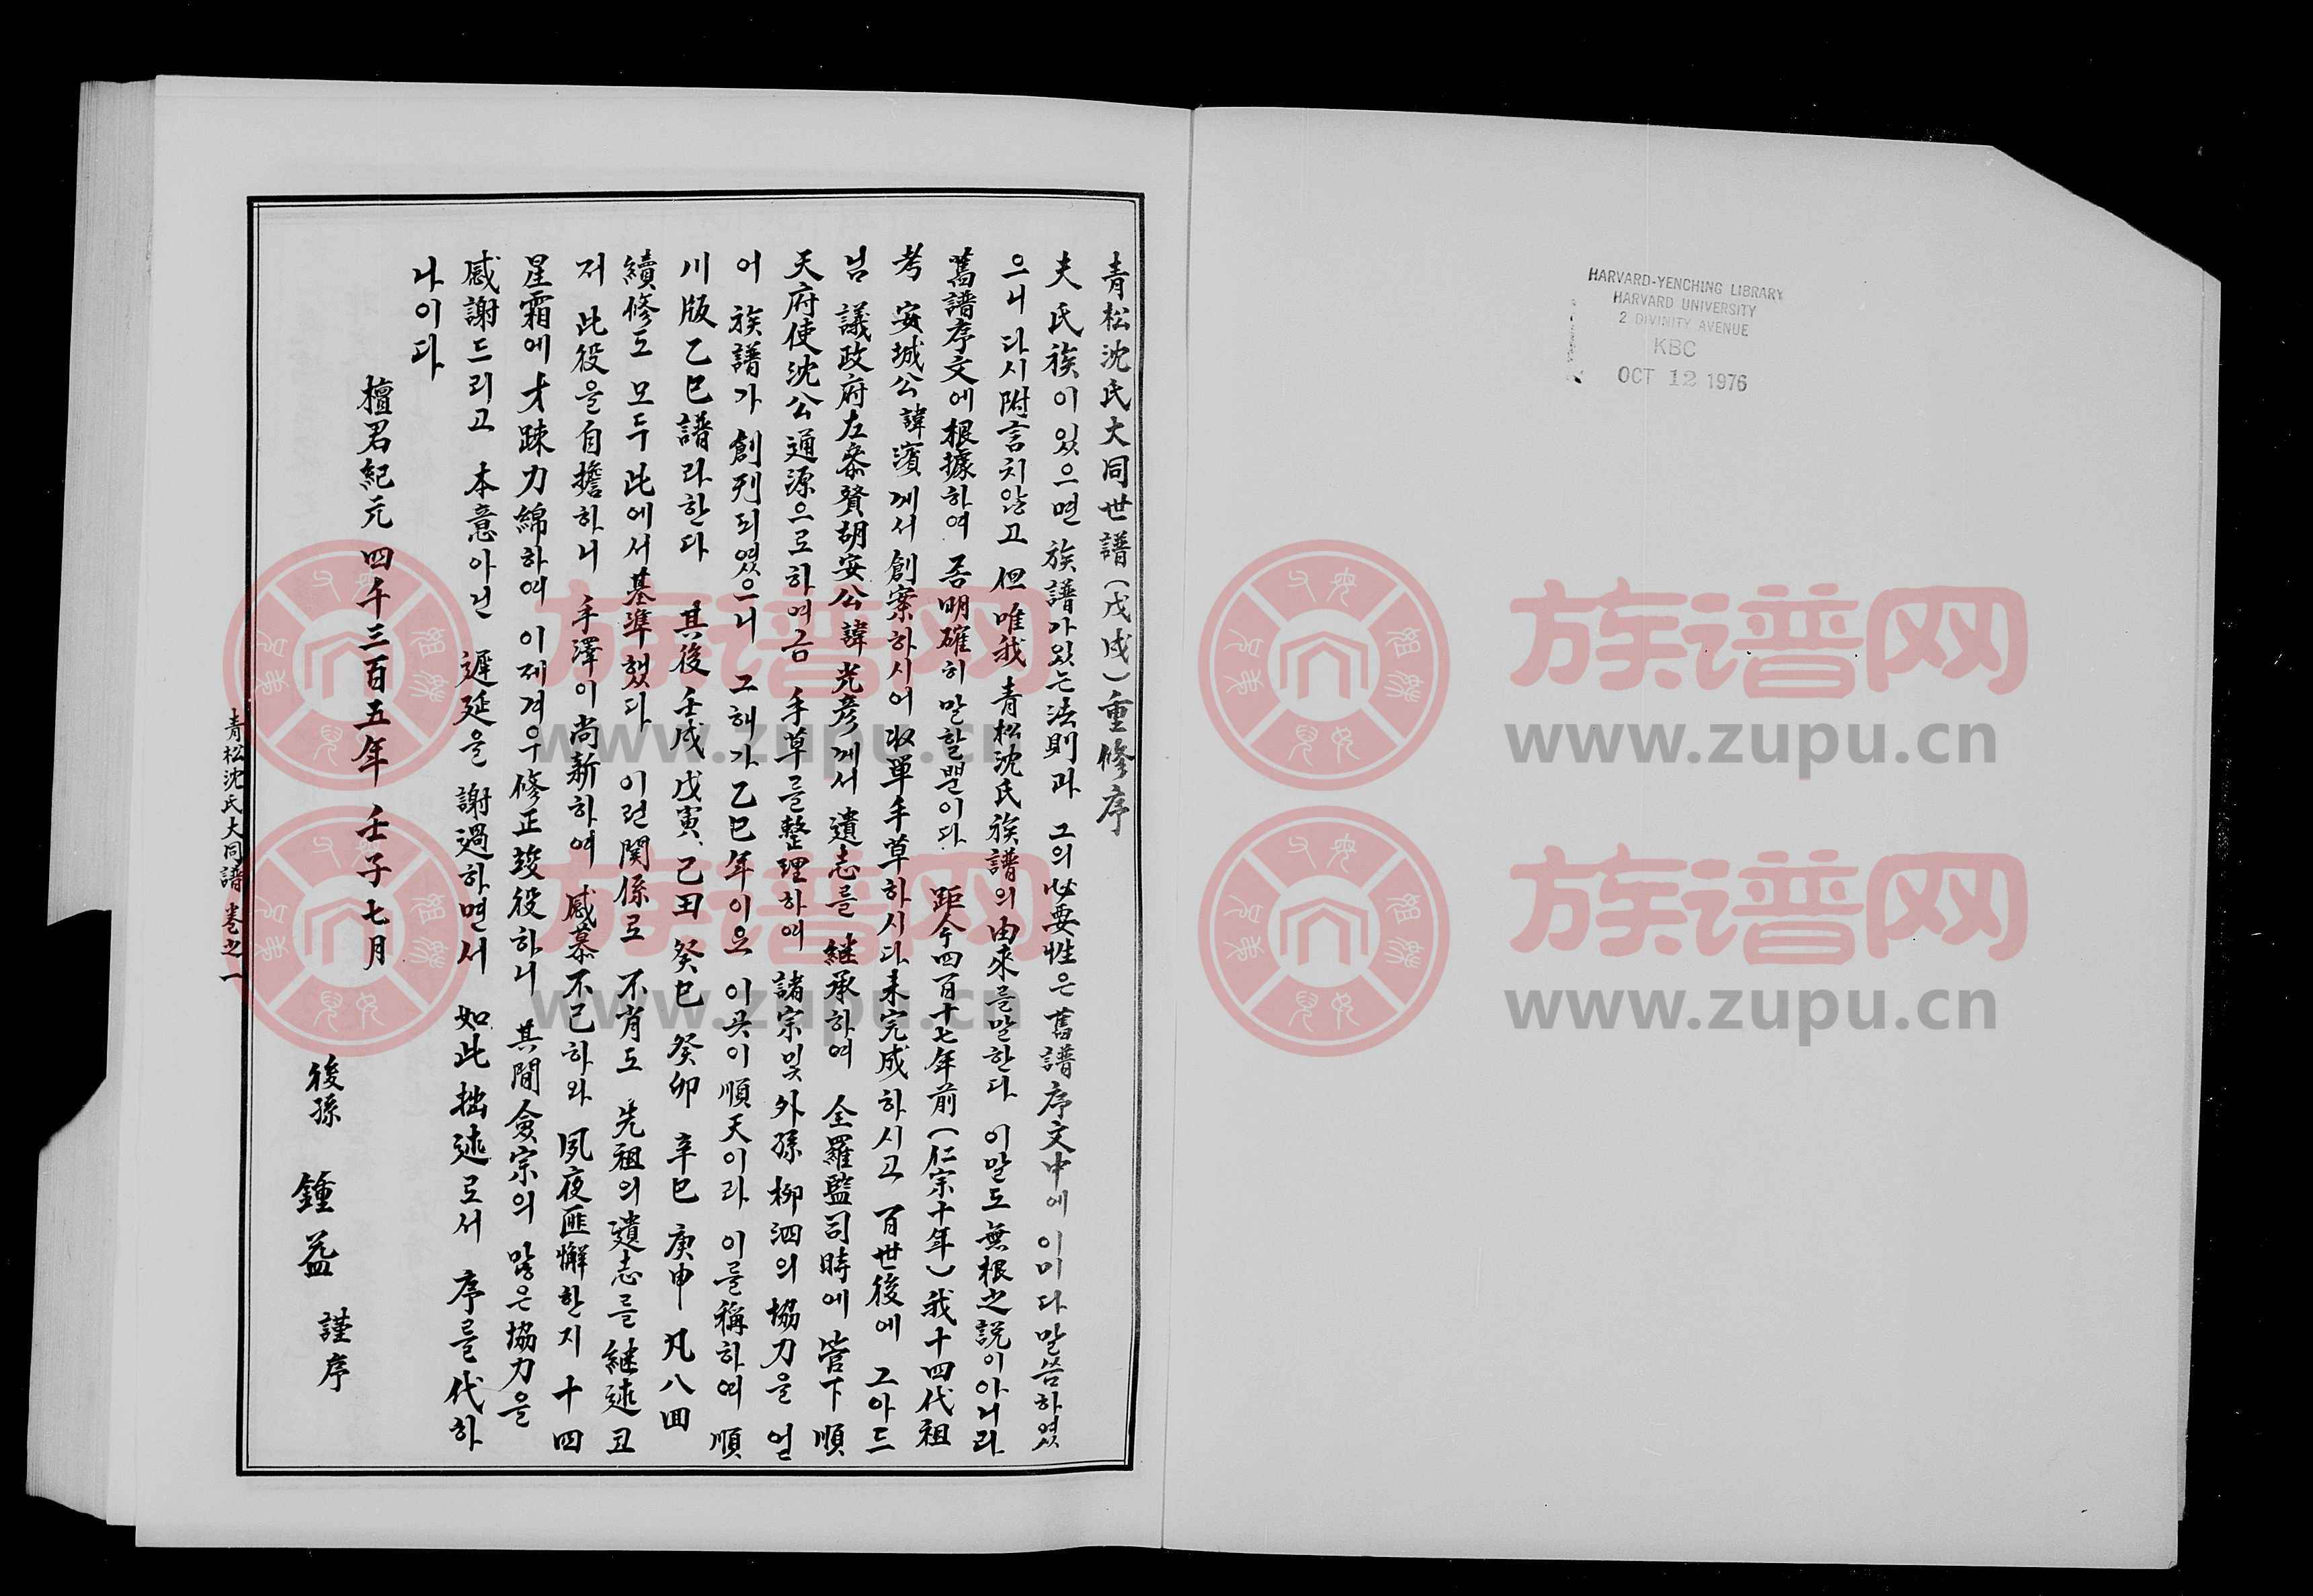 青松沈氏大同世譜(戊戌)重修序
夫 氏族이있으면 族譜가있는法則과 그의必要性은舊譜序文中에이미다말씀하였
으니 다시附言치않고 但唯我 青松沈氏族譜의由來를말한다 이말도無根之說이아니라
舊譜序文에根據하여 좀明確히말할뿐이다 距今四百十七年前(仁宗十年)我十四代祖
考 安城公諱濱께서創案하시어收單手草하시다未完成하시고 百世後에 그아드
님 議政府左參贊胡安公諱光彦께서 遺志를 継承하여 全羅監司時에 管下 順
天府使沈公通源으로하여금 手草를整理하여 諸宗및外孫柳泗의協力을 얻
어 族譜가 創刊되였으니 그해가乙巳年이오 이곳이順天이라 이를稱하여 順
川版乙巳譜라한다 其後壬戌 戊寅、己田 癸巳 癸卯 辛巳 庚申 凡八回
續修도 모두此에서基準했다 이런関係로 不肖도 先祖의遺志를継述코
저 此役을自擔하니 手澤이尚新하여 感慕不已하와 夙夜匪懈한지 十四
星霜에才踈力綿하여 이제겨우修正竣役하니 其間僉宗의많은協力을
感謝드리고 本意아닌 遲延을 謝過하면서 如此拙述로서 序를代하
나이다
檀君紀元 四千三百五年 壬子七月
後孫 鍾益 謹序
青松沈氏大同譜 卷之一
HARVARD-YENCHING LIBRARY
HARVARD UNIVERSITY
2 DIVINITY AVENUE
KBC
OCT 12 1976
族谱网
www.zupu.cn
族谱网
www.zupu.cn
族谱网
www.zupu.cn
族谱网
www.zupu.cn